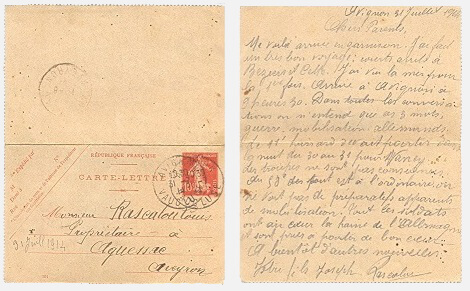 RÉPUBLIQUE FRANÇAISE
CARTE-LETTRE
Monsieur Rascalou Louis
Propriétaire à
Aguessac
Aveyron
31 Juill 1914
Avignon 31 Juillet 1914
Chers Parents,
Me voilà arrivé en garnison. J'ai fait
un très bon voyage;
Béziers et Cette. J'ai vu la mer pour
la 1ère fois. Arrivé à Avignon à
2 heures 30. Dans toutes les conversa
tions on n'entend que ces 3 mots,
guerre, mobilisation, allemands.
Le 11e hussard de
la nuit du 30 au 31 pour Nancy
des troupes
du 58e
voit pas de préparatifs apparents
de mobilisation. Tout les soldats
ont au cœur la haine de l'Allemagne
et sont prêts à partir de bon cœur.
A bientôt d'autres nouvelles
Votre fils Joseph Rascalou